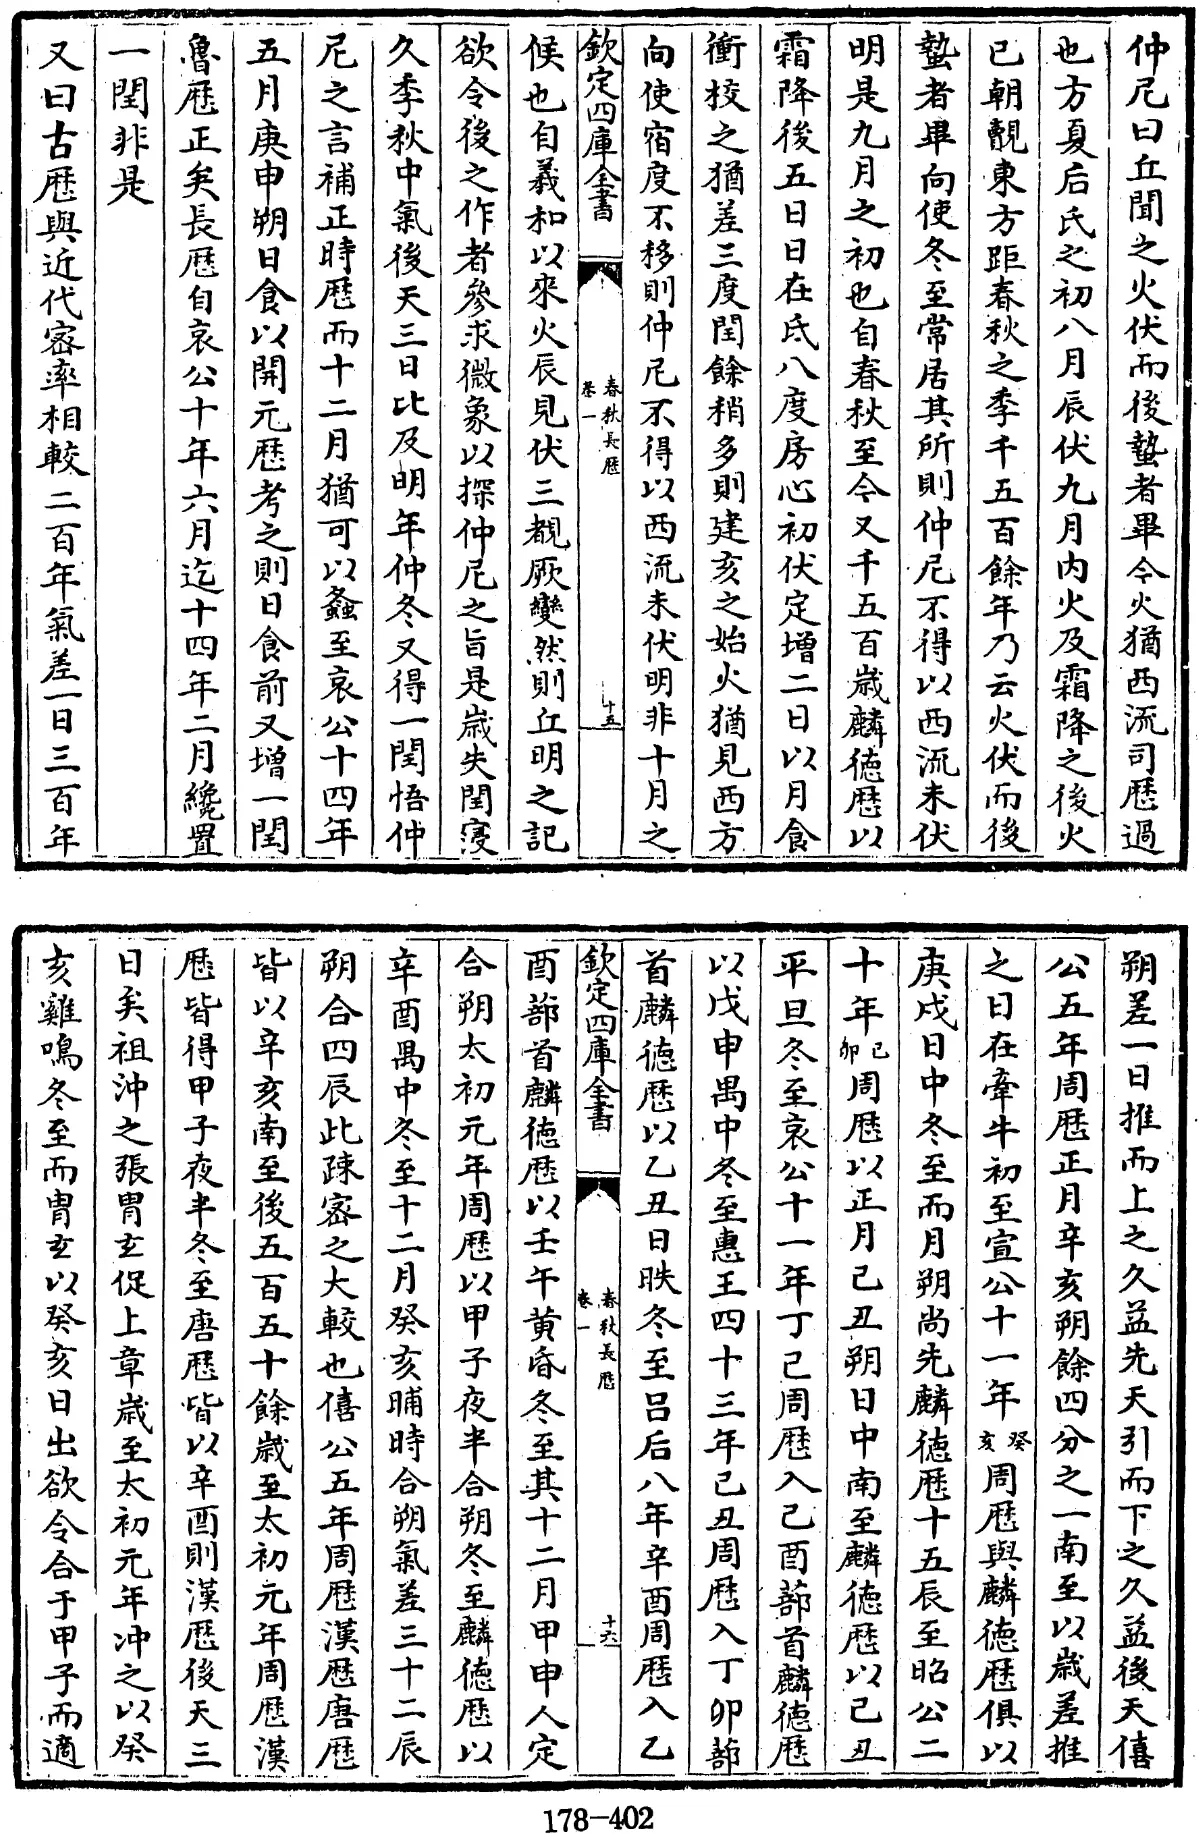 仲尼曰丘聞之火伏而後蟄者畢今火猶西流司歷過
也方夏后氏之初八月辰伏九月内火及霜降之後火
已朝覿東方距春秋之季千五百餘年乃云火伏而後
蟄者畢向使冬至常居其所則仲尼不得以西流未伏
明是九月之初也自春秋至今又千五百歲麟德歷以
霜降後五日日在氐八度房心初伏定增二日以月食
衝校之猶差三度閏餘稍多則建亥之始火猶見西方
向使宿度不移則仲尼不得以西流未伏明非十月之
欽定四庫全書
春秋長歷
卷一
十五
候也自羲和以來火辰見伏三覩厥變然則丘明之記
欲令後之作者參求微象以探仲尼之旨是歲失閏寖
久季秋中氣後天三日比及明年仲冬又得一閏悟仲
尼之言補正時歷而十二月猶可以螽至哀公十四年
五月庚申朔日食以開元歷考之則日食前又增一閏
魯歷正矣長歷自哀公十年六月迄十四年二月纔置
一閏非是
又曰古歷與近代密率相較二百年氣差一日三百年
朔差一日推而上之久益先天引而下之久益後天僖
公五年周歷正月辛亥朔餘四分之一南至以歲差推
之日在牽牛初至宣公十一年癸亥周歷與麟德歷俱以
庚戌日中冬至而月朔尚先麟德歷十五辰至昭公二
十年己卯周歷以正月己丑朔日中南至麟德歷以己丑
平旦冬至哀公十一年丁己周歷入己酉蔀首麟德歷
以戊申禺中冬至惠王四十三年己丑周歷入丁卯蔀
首麟德歷以乙丑日昳冬至吕后八年辛酉周歷入乙
欽定四庫全書
春秋長歷
卷一
十六
酉蔀首麟德歷以壬午黄昏冬至其十二月甲申人定
合朔太初元年周歷以甲子夜半合朔冬至麟德歷以
辛酉禺中冬至十二月癸亥晡時合朔氣差三十二辰
朔合四辰此疎密之大較也僖公五年周歷漢歷唐歷
皆以辛亥南至後五百五十餘歲至太初元年周歷漢
歷皆得甲子夜半冬至唐歷皆以辛酉則漢歷後天三
日矣祖沖之張胄玄促上章歲至太初元年沖之以癸
亥雞鳴冬至而胄玄以癸亥日出欲令合于甲子而適
178-402